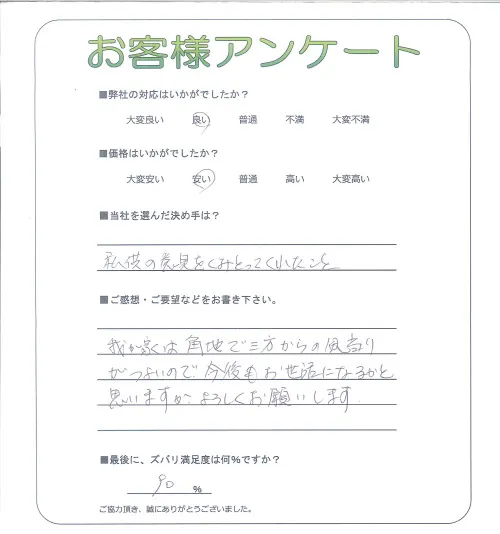 お客様アンケート
■弊社の対応はいかがでしたか？
大変良い 良い 普通 不満 大変不満
■価格はいかがでしたか？
大変安い 安い 普通 高い 大変高い
■当社を選んだ決め手は？
私供の意見をくみとってくれたこと
■ご感想・ご要望などをお書き下さい。
我が家は角地で三方からの風当り
がつよいので今後もお世話になるかと
思いますがよろしくお願いします
■最後に、ズバリ満足度は何%ですか？
90 %
ご協力頂き、誠にありがとうございました。